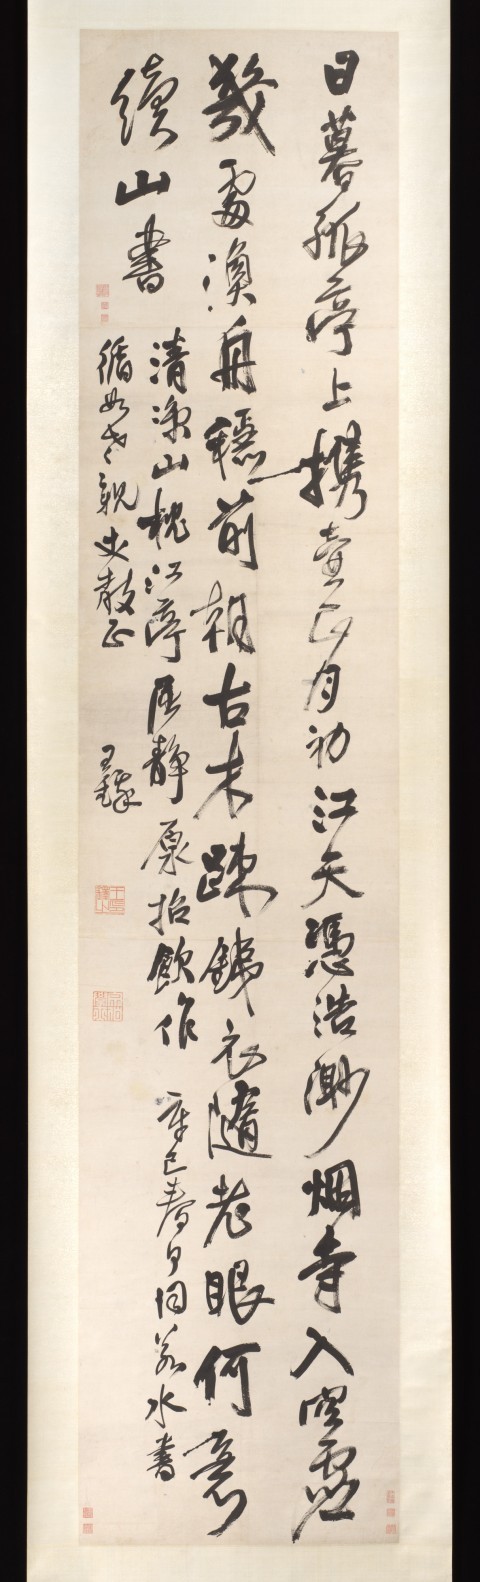 日暮孤亭上携壺正月初江天憑浩渺烟寺入空虛
幾處漁舟穩前朝古木疎衣隨老眼何意
續山書
清涼山枕江亭靜原招飲作 辛巳春日書
循如老親丈教正 王鐸